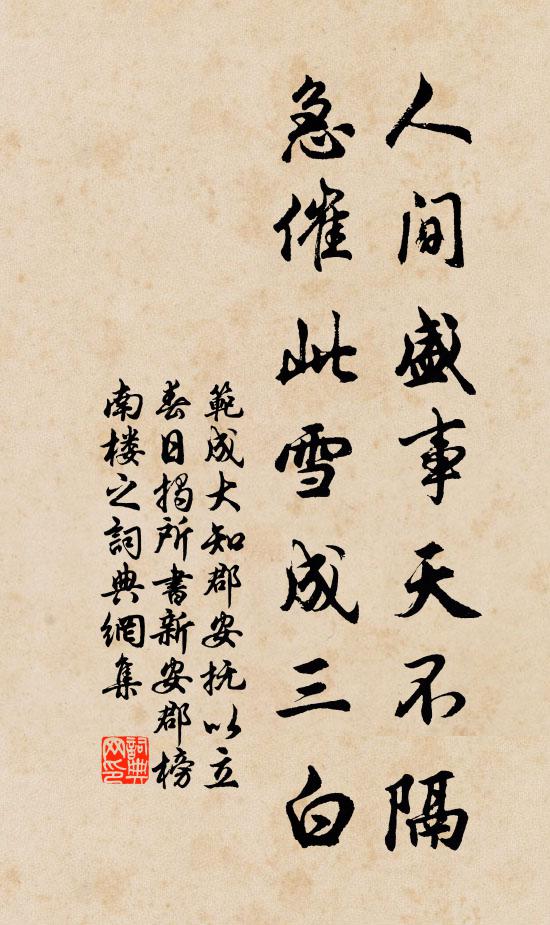 人间盛事天不隔
急催此雪成三白
範成大知郡安抚以立
春日揭所書新安郡榜
南楼之詞典網集
詞典网印